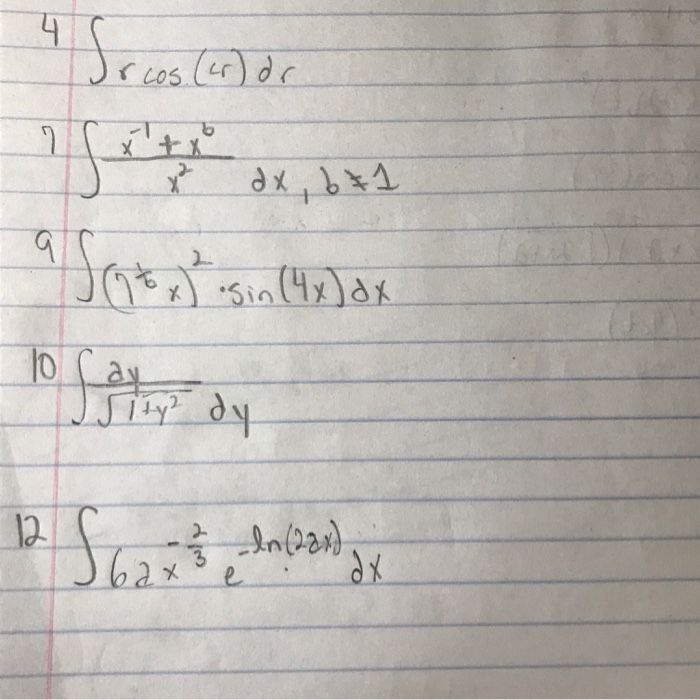 4 ∫ r cos(cr) dr
7 ∫ (x^-1 + x^b)/x^2 dx, b ≠ 1
9 ∫ (7^(1/6) x)^2 · sin(4x) dx
10 ∫ ay/√(1+y^2) dy
12 ∫ 6ax^(-2/3) e^(-ln(2ax)) dx